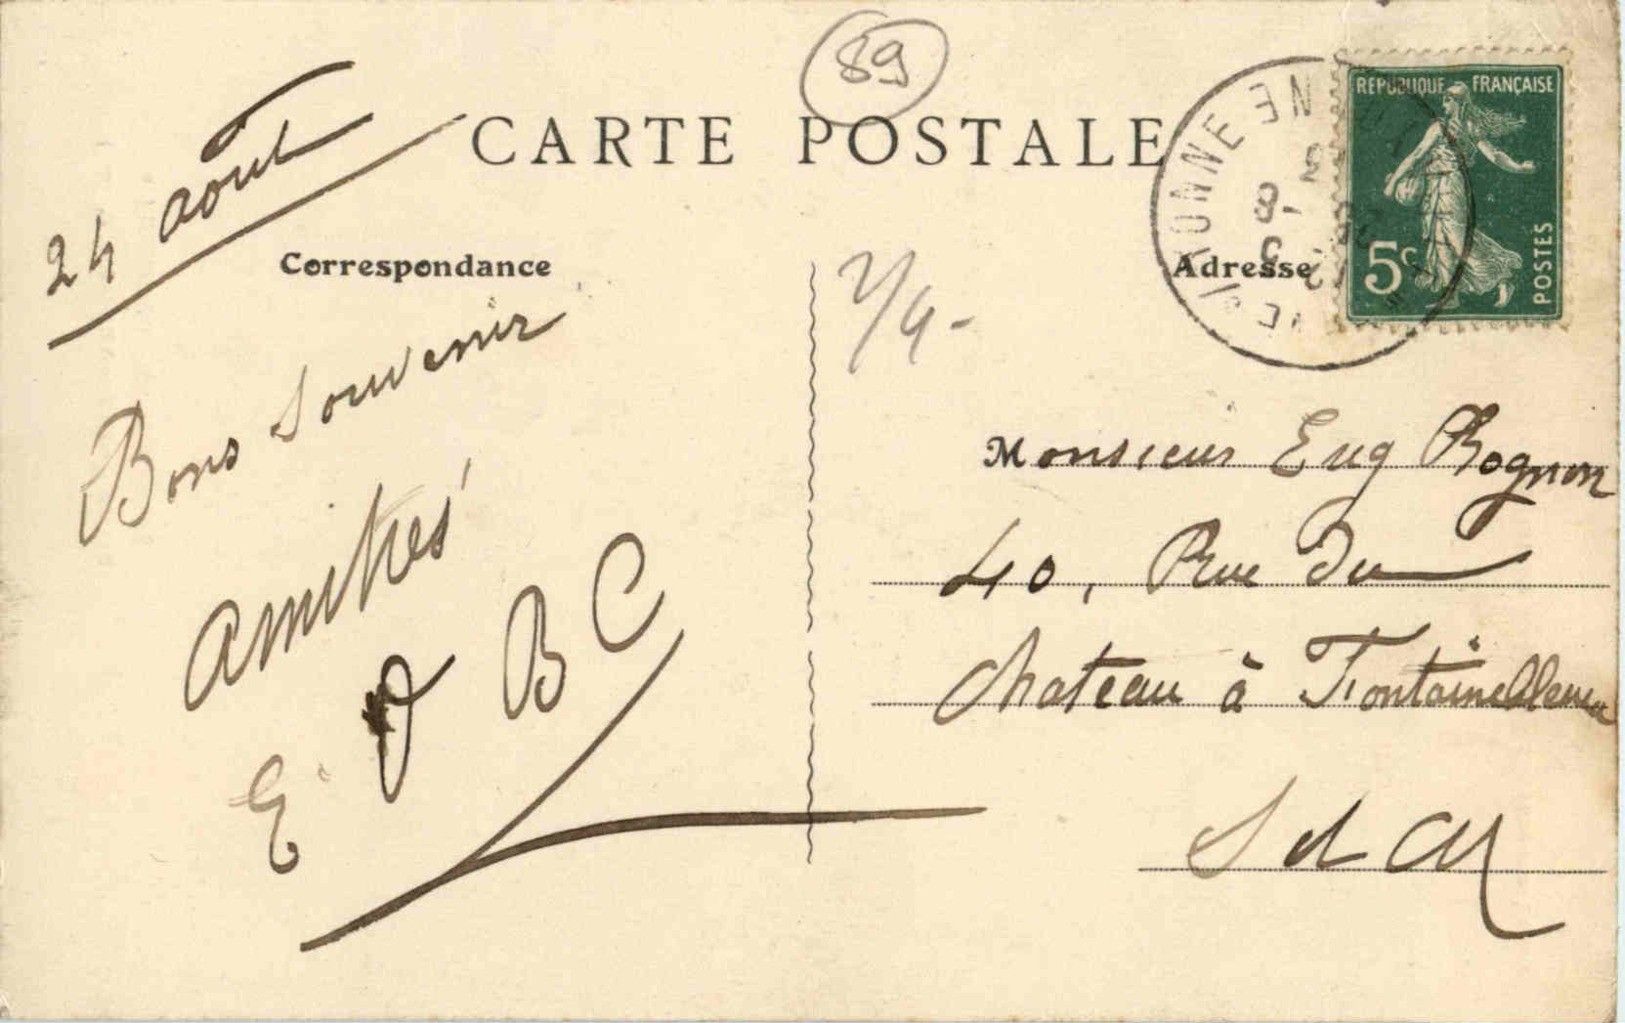 89
CARTE POSTALE
RÉPUBLIQUE FRANÇAISE
5c
POSTES
24 aout
Correspondance
Bons Souvenir
amitiés
E. D B C
2/4-
Adresse
Monsieur Eug Rognon
40, Rue Du
Chateau à Fontainebleau
S et M